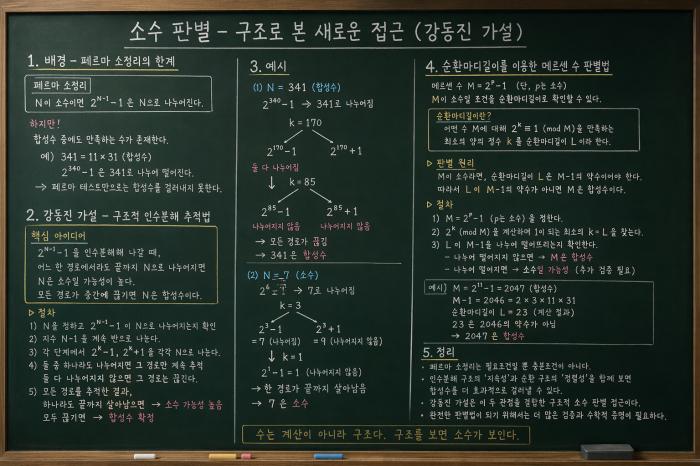 소수 판별 – 구조로 본 새로운 접근 (강동진 가설)
1. 배경 – 페르마 소정리의 한계
페르마 소정리
N이 소수이면 2^{N-1}-1 은 N으로 나누어진다.
하지만!
합성수 중에도 만족하는 수가 존재한다.
예) 341 = 11 × 31 (합성수)
2^{340}-1 은 341로 나누어 떨어진다.
→ 페르마 테스트만으로는 합성수를 걸러내지 못한다.
2. 강동진 가설 – 구조적 인수분해 추적법
핵심 아이디어
2^{N-1}-1 을 인수분해해 나갈 때,
어느 한 경로에서라도 끝까지 N으로 나누어지면
N은 소수일 가능성이 높다.
모든 경로가 중간에 끊기면 N은 합성수이다.
▷ 절차
1) N을 정하고 2^{N-1}-1 이 N으로 나누어지는지 확인
2) 지수 N-1을 계속 반으로 나눈다.
3) 각 단계에서 2^k-1, 2^k+1을 각각 N으로 나눈다.
4) 둘 중 하나라도 나누어지면 그 경로만 계속 추적
둘 다 나누어지지 않으면 그 경로는 끊긴다.
5) 모든 경로를 추적한 결과,
하나라도 끝까지 살아남으면 → 소수 가능성 높음
모두 끊기면 → 합성수 확정
3. 예시
(1) N = 341 (합성수)
2^{340}-1 → 341로 나누어짐
k = 170
2^{170}-1 2^{170}+1
둘 다 나누어짐
↓ k = 85
2^{85}-1 2^{85}+1
나누어지지 않음 나누어지지 않음
→ 모든 경로가 끊김
→ 341은 합성수
(2) N = 7 (소수)
2^6-1 → 7로 나누어짐
k = 3
2^3-1 2^3+1
= 7 (나누어짐) = 9 (나누어지지 않음)
↓ k = 1
2^1-1 = 1 (나누어지지 않음)
→ 한 경로가 끝까지 살아남음
→ 7 은 소수
4. 순환마디길이를 이용한 메르센 수 판별법
메르센 수 M = 2^p-1 (단, p는 소수)
M이 소수일 조건을 순환마디길이로 확인할 수 있다.
순환마디길이란?
어떤 수 M에 대해 2^k ≡ 1 (mod M)을 만족하는
최소의 양의 정수 k 를 순환마디길이 L 이라 한다.
▷ 판별 원리
M이 소수라면, 순환마디길이 L은 M-1의 약수이어야 한다.
따라서 L이 M-1의 약수가 아니면 M은 합성수이다.
▷ 절차
1) M = 2^p-1 (p는 소수) 을 정한다.
2) 2^k (mod M)을 계산하며 1이 되는 최소의 k = L 을 찾는다.
3) L이 M-1을 나누어 떨어뜨리는지 확인한다.
– 나누어 떨어지지 않으면 → M은 합성수
– 나누어 떨어지면 → 소수일 가능성 (추가 검증 필요)
예시) M = 2^{11}-1 = 2047 (합성수)
M-1 = 2046 = 2 × 3 × 11 × 31
순환마디길이 L = 23 (계산 결과)
23 은 2046의 약수가 아님
→ 2047 은 합성수
5. 정리
• 페르마 소정리는 필요조건일 뿐 충분조건이 아니다.
• 인수분해 구조의 '지속성'과 순환 구조의 '정렬성'을 함께 보면
합성수를 더 효과적으로 걸러낼 수 있다.
• 강동진 가설은 이 두 관점을 결합한 구조적 소수 판별 접근이다.
• 완전한 판별법이 되기 위해서는 더 많은 검증과 수학적 증명이 필요하다.
수는 계산이 아니라 구조다. 구조를 보면 소수가 보인다.